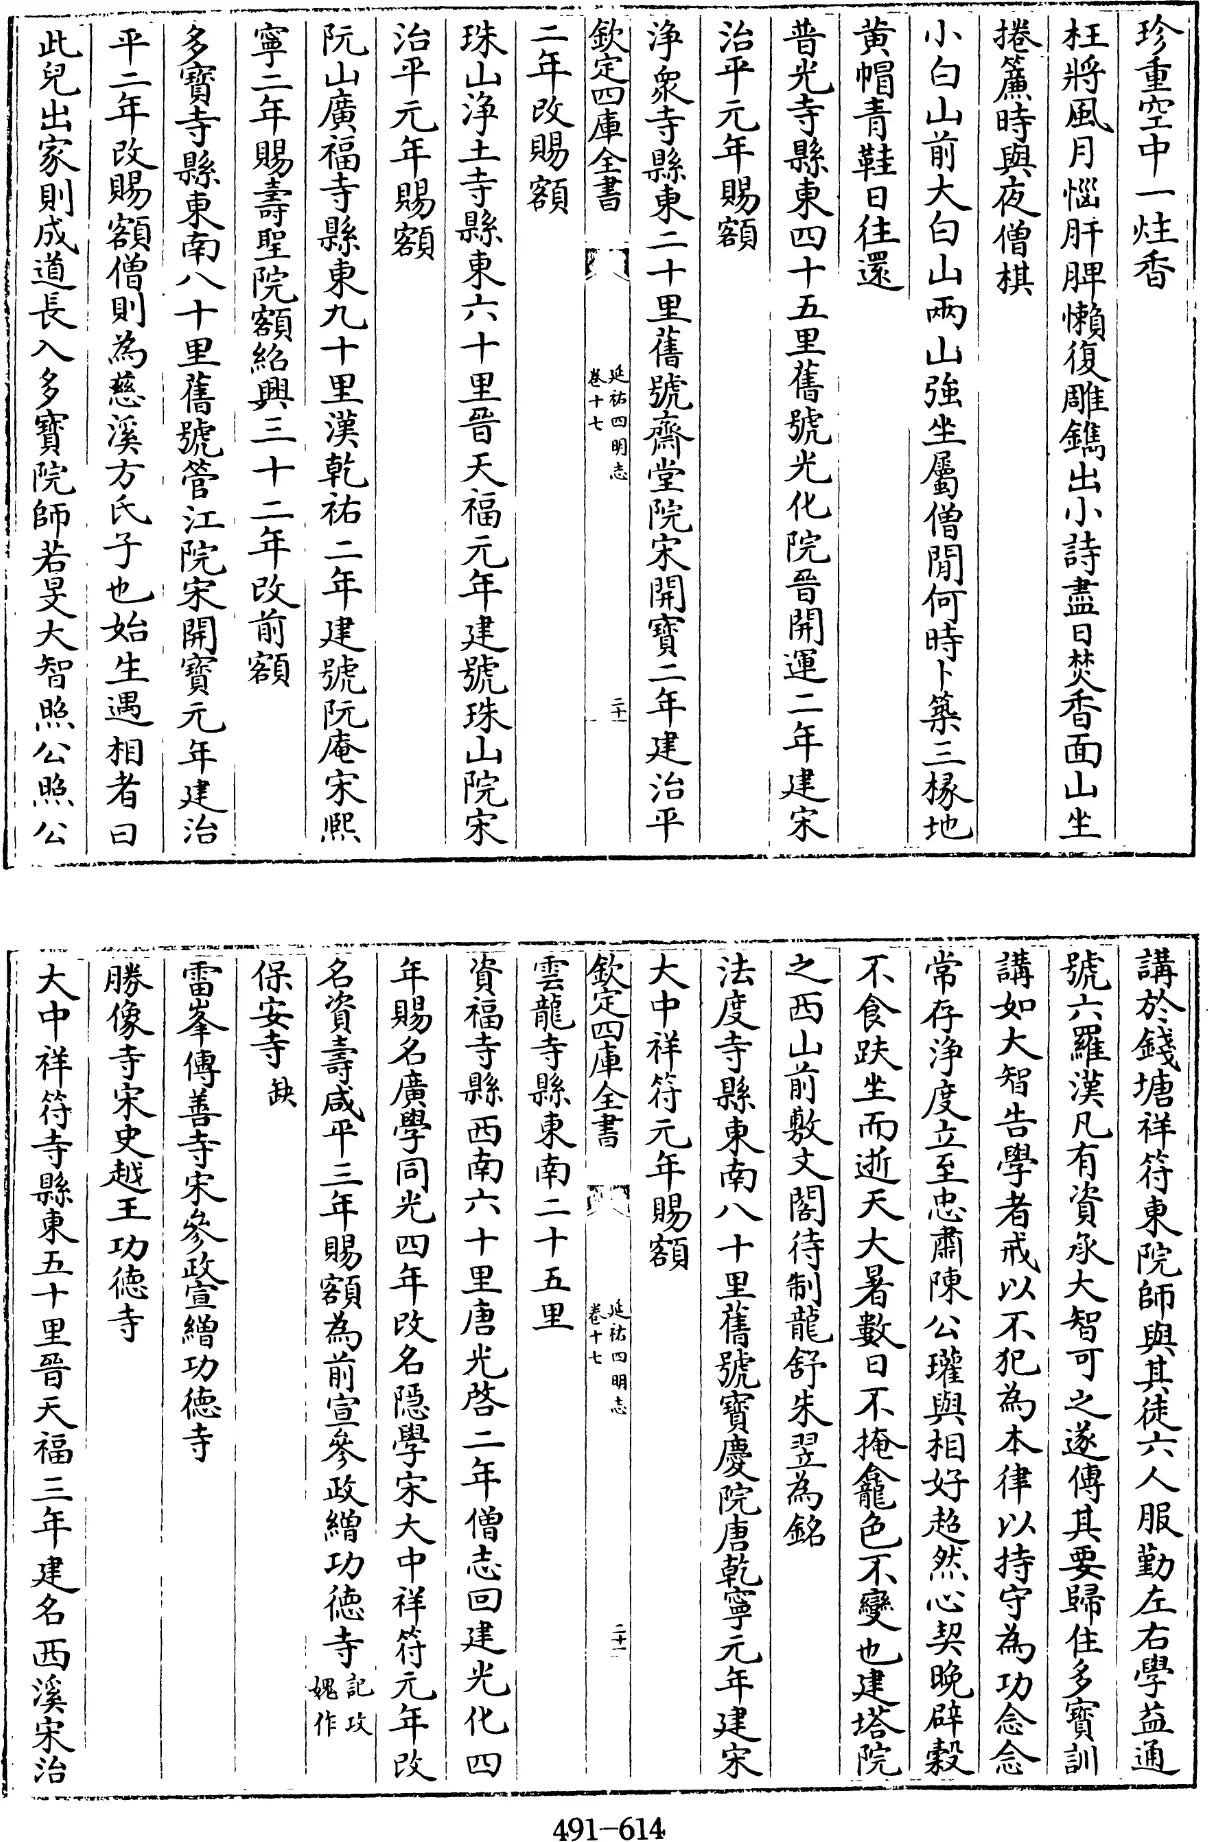 珍重空中一炷香
枉將風月惱肝脾懶復雕鐫出小詩盡日焚香面山坐
捲簾時與夜僧棋
小白山前大白山兩山強坐屬僧閒何時卜築三椽地
黄帽青鞋日往還
普光寺縣東四十五里舊號光化院晉開運二年建宋
治平元年賜額
浄衆寺縣東二十里舊號齋堂院宋開寶二年建治平
欽定四庫全書
延祐四明志
卷十七
二十
二年改賜額
珠山浄土寺縣東六十里晉天福元年建號珠山院宋
治平元年賜額
阮山廣福寺縣東九十里漢乾祐二年建號阮庵宋熙
寧二年賜壽聖院額紹興三十二年改前額
多寶寺縣東南八十里舊號管江院宋開寶元年建治
平二年改賜額僧則為慈溪方氏子也始生遇相者曰
此兒出家則成道長入多寶院師若旻大智照公照公
講於錢塘祥符東院師與其徒六人服勤左右學益通
號六羅漢凡有資承大智可之遂傳其要歸住多寶訓
講如大智告學者戒以不犯為本律以持守為功念念
常存浄度立至忠肅陳公瓘與相好超然心契晩辟穀
不食趺坐而逝天大暑數日不掩龕色不變也建塔院
之西山前敷文閣待制龍舒朱翌為銘
法度寺縣東南八十里舊號寶慶院唐乾寧元年建宋
大中祥符元年賜額
欽定四庫全書
延祐四明志
卷十七
二十一
雲龍寺縣東南二十五里
資福寺縣西南六十里唐光啓二年僧志回建光化四
年賜名廣學同光四年改名隱學宋大中祥符元年改
名資壽咸平三年賜額為前宣參政繒功德寺記攻媿作
保安寺缺
雷峯傳善寺宋參政宣繒功德寺
勝像寺宋史越王功德寺
大中祥符寺縣東五十里晉天福三年建名西溪宋治
491-614